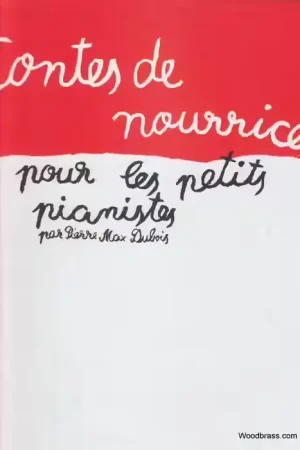 Contes de
nourrice
pour les petits
pianistes
par Pierre Max Dubois
Woodbrass.com